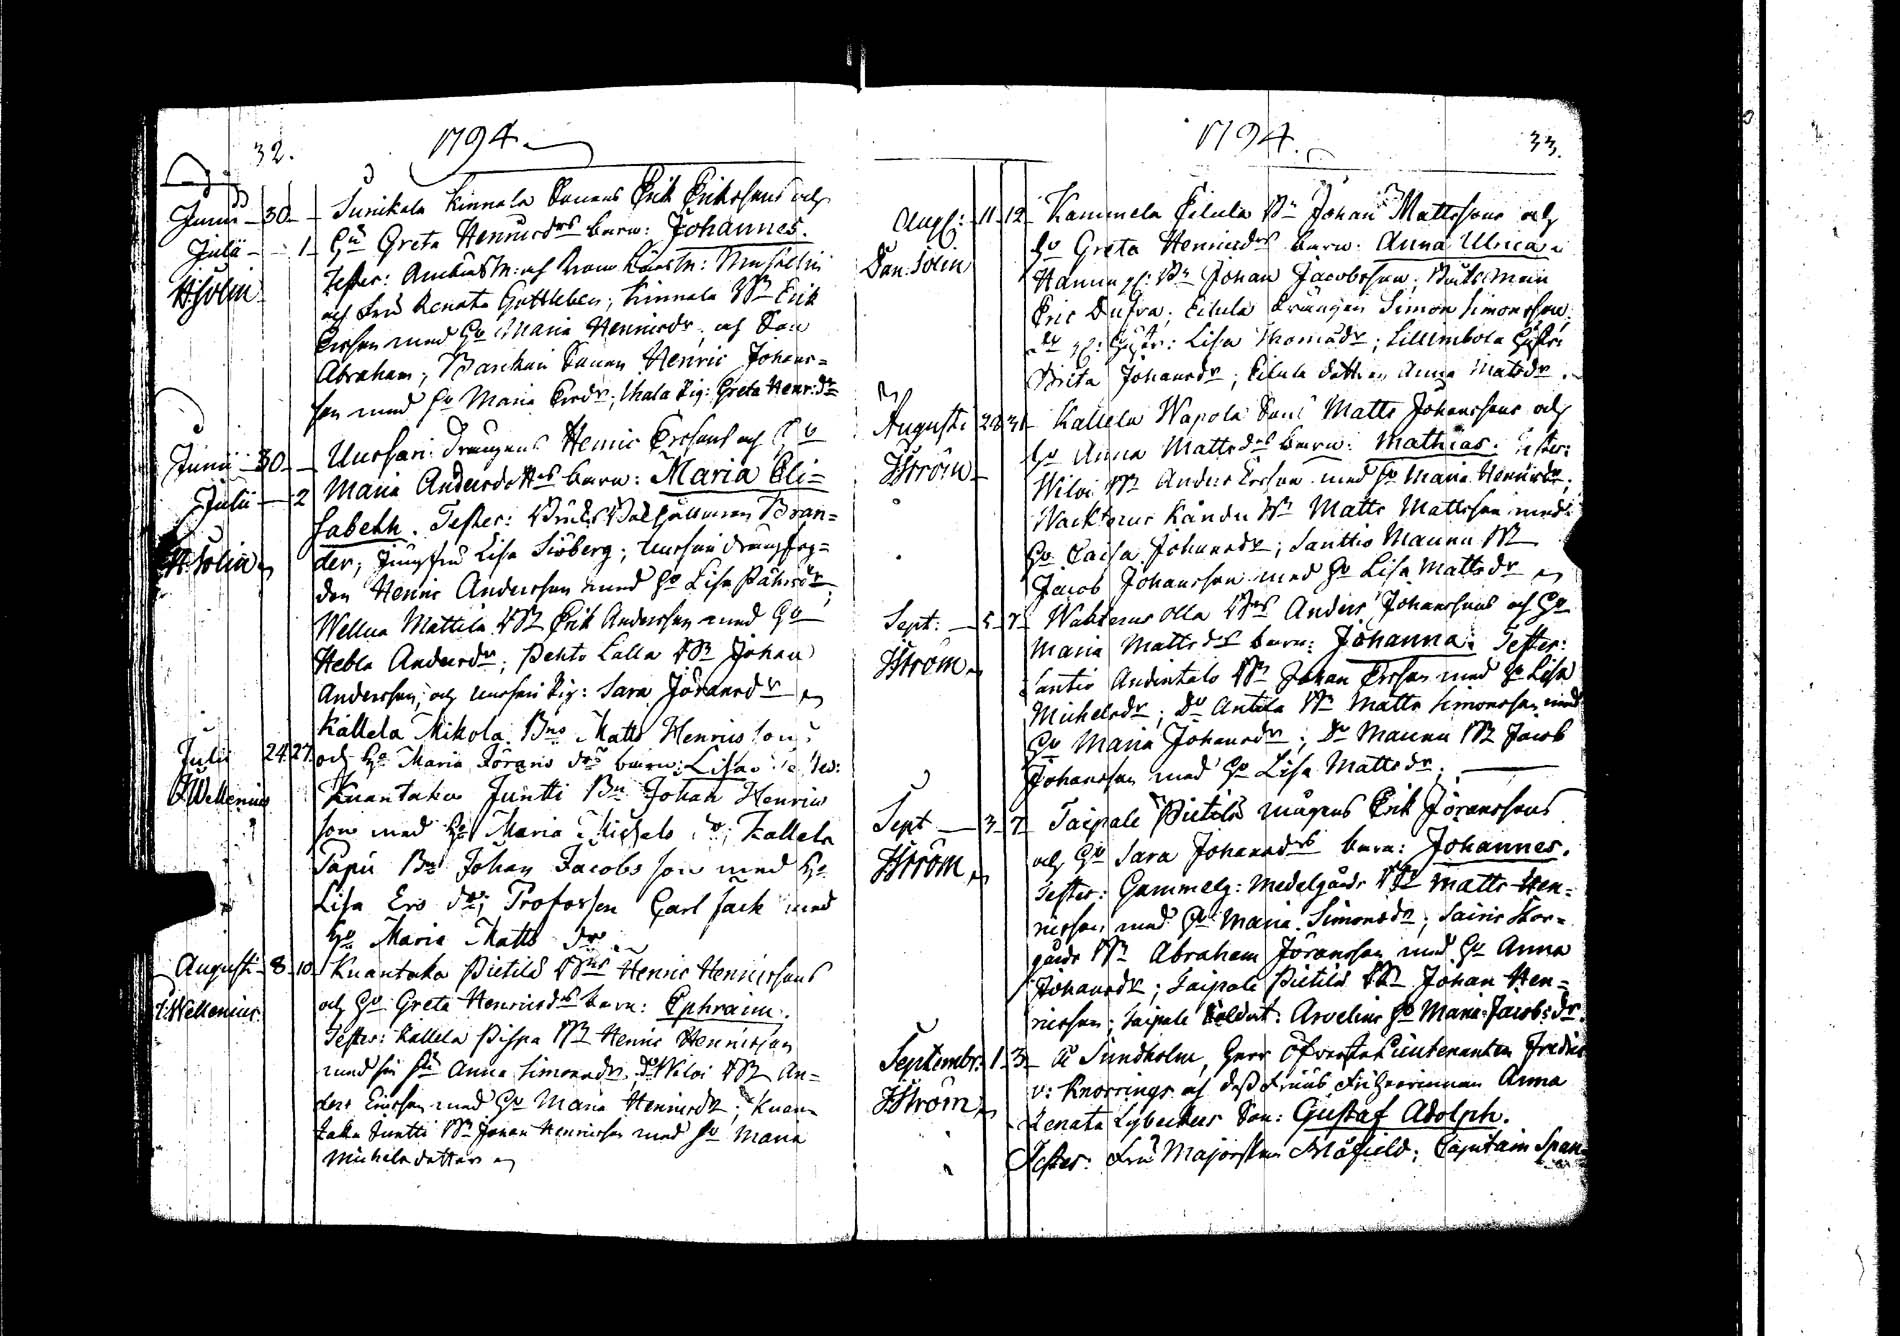 32.
1794.
Junii 30
Julii 1
HSolin
Sunikala Kinnala Sonens Erik Erikssons och
Hu Greta Henricsdrs barn: Johannes.
Tester:
och Fru Renata Gottleben; Kinnala Bn Erik
Ersson med Hu Maria Henricsdr; och Son
Abraham; Sonen Henric Johans=
son med Hu Maria Ersdr; Uhala Pig: Greta Henr:dr
Junii 30
Julii 2
H.Solin
Uursari Drängens Henric Erssons och Hu
Maria Andersdotters barn: Maria Eli=
sabeth. Tester: Bran=
der; Jungfru Lisa Siöberg; Uursari
den Henric Andersson med Hu Lisa
Wellua Mattila Bn Erik Andersson med Hu
Hebla Andersdr; Pehto Lalla Bn Johan
Andersson; och Uursari Pig: Sara Jöransdr
Julii 24 27
Wellenius
Kallela Mikola Bns Matts Henrics sons
och Hu Maria Jörans drs barn: Lisa
Kuantaka Juntti Bn Johan Henrics
son med Hu Maria Michels dr; Kallela
Papu Bn Johan Jacobs son med Hu
Lisa Ers dr; Profossen Carl Jack med
Hu Maria Matts dr.
Augusti 8 10
Wellenius
Kuantaka Pietilä Bns Henric Henricssons
och Hu Greta Henricsdrs barn: Ephraim.
Tester: Kallela Pispa Bn Henric Henricsson
med sin Hu Anna Simonsdr; Do Wiloi Bn An=
ders Ericsson med Hu Maria Henricsdr; Kuan=
taka Juntti Bn Johan Henricsson med Hu Maria
Michelsdotter
1794.
33.
Aug: 11 12
Dan: Solin
Kammela Eilula Bn Johan Mattssons och
Hu Greta Henricsdrs barn: Anna Ulrica.
Hannu Bn Johan Jacobsson; Båtsman
Eric Dufva; Eilula Drängen Simon Simonsson;
Lisa Thomasdr; Lillimbola
Brita Johansdr; Eilula dottren Anna Matsdr.
Augusti 28 31
JStröm
Kallela Wapola Sons Matts Johanssons och
Hu Anna Mattsdrs barn: Mathias. Tester:
Wiloi Bn Anders Ersson med Hu Maria Henricsdr;
Wackterus Kändu Bn Matts Mattsson med
Hu Caisa Johansdr; Santtio Maunu Bn
Jacob Johansson med Hu Lisa Mattsdr
Sept: 5 7
JStröm
Wakterus Olla Bns Anders Johanssons och Hu
Maria Mattsdrs barn: Johanna. Tester:
Santio Andintalo Bn Johan Ersson med Hu Lisa
Michelsdr; Do Antila Bn Matts Simonsson med
Hu Maria Johansdr; Do Maunu Bn Jacob
Johansson med Hu Lisa Mattsdr.
Sept 3 7
JStröm
Taipale Pietilä mågens Erik Jöranssons
och Hu Sara Johansdrs barn: Johannes.
Tester: Gammelg: Medelgårds Bn Matts Hen=
ricsson med Hu Maria Simonsdr; Sairis Stor=
gårds Bn Abraham Jöransson med Hu Anna
Johansdr; Taipale Pietilä Bn Johan Hen=
ricsson; Taipale Soldat: Arvelins Hu Maria Jacobsdr.
Septembr: 1 3
JStröm
å Sundholm, Herr Öfverste Lieutenanten Fredric
v: Knorrings och dess Frus Friherrinnan Anna
Renata Lybeckers Son: Gustaf Adolph.
Tester: Fru Majorskan Capitain Span=